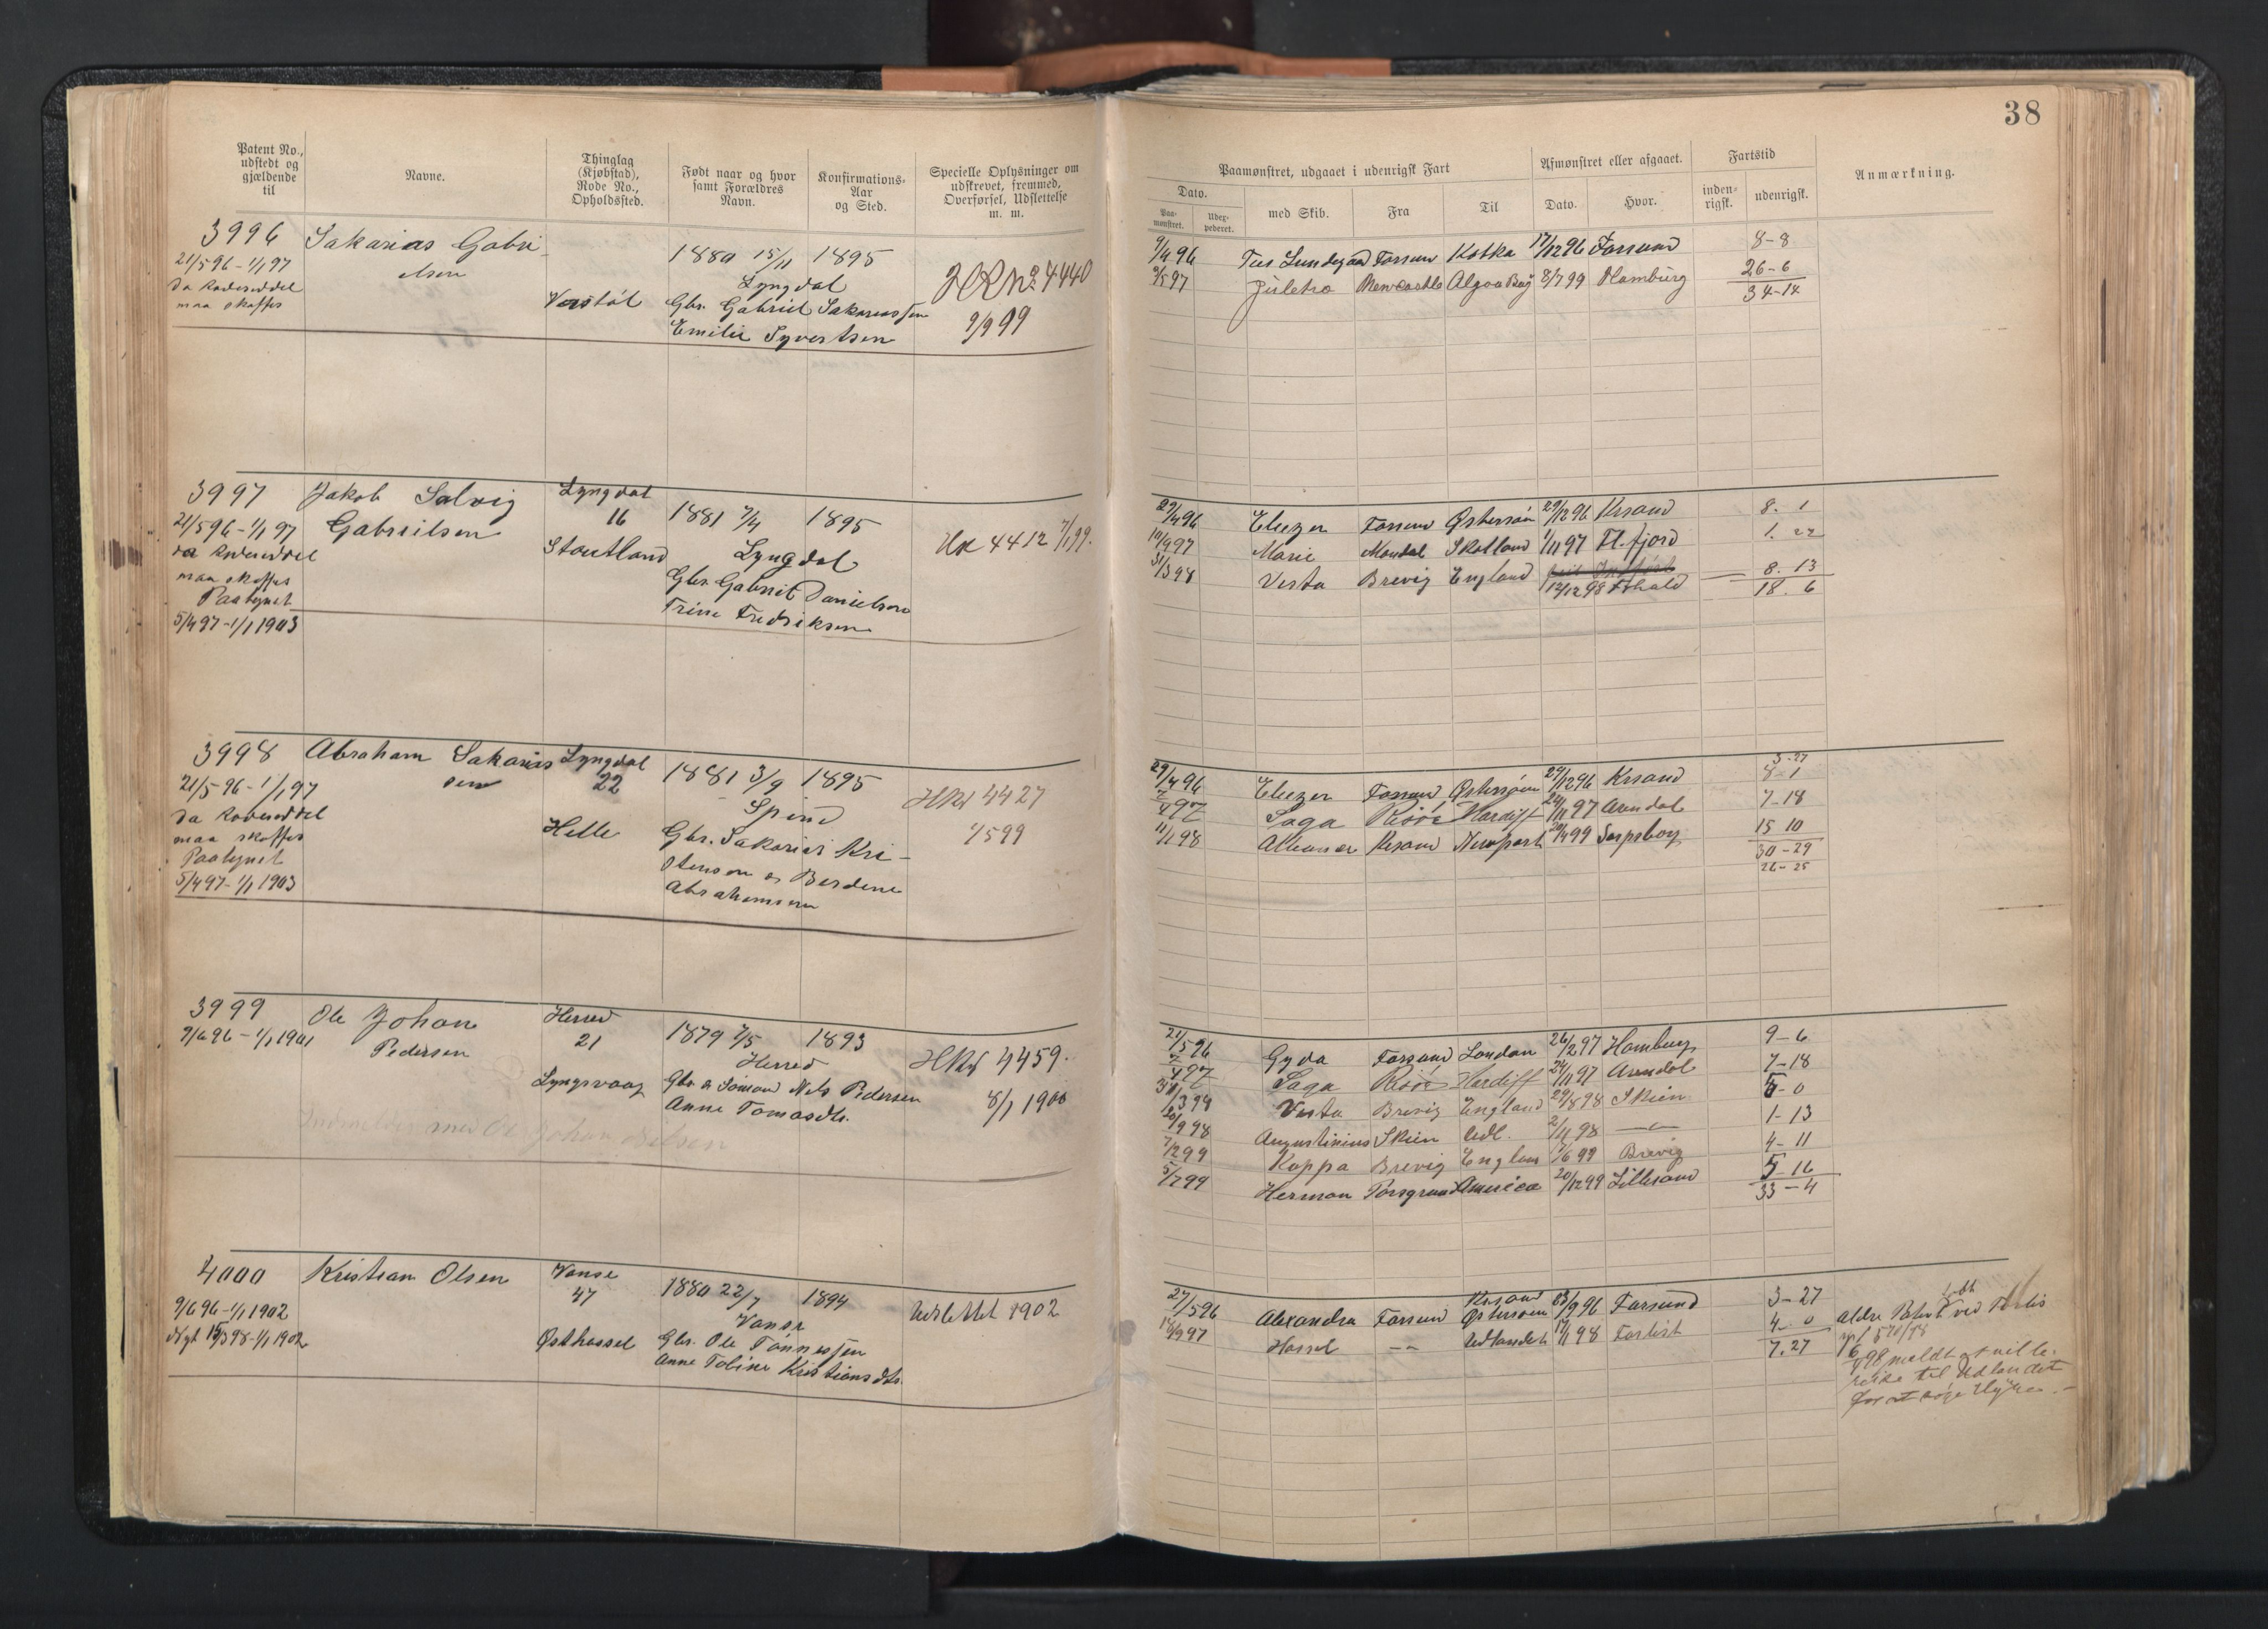 38
Patent No., udstedt og gjældende til
Navne.
Thinglag (Kjøbstad), Rode No., Opholdssted.
Født naar og hvor samt Forældres Navn.
Konfirmations-Aar og Sted.
Specielle Oplysninger om udskrevet, fremmed, Overførsel, Udslettelse m. m.
Paamønstret, udgaaet i udenrigsk Fart
Afmønstret eller afgaaet.
Fartstid
Anmærkning.
Dato.
Paamønstret.
Uderpederet.
med Skib.
Fra
Til
Dato.
Hvor.
indenrigsk.
udenrigsk.
3996 Sakarias Gabri-
elsen
21/5 96 - 1/1 97
da Rodeseddel
maa skaffes
Verstøl
1880 15/11 1895
Lyngdal
Gbr. Gabriel Sakariassen
Emilie Syvertsen
HR No 4440
9/9 99
9/4 96 Tus Lundegaard Farsund Kotka 17/12 96 Farsund 8-8
97 Juletræ Newcastle Algoa Bay 8/7 99 Hamburg 26-6
34-14
3997 Jakob Salvig
Gabrielsen
21/5 96 - 1/1 97
da Rodeseddel
maa skaffes
Paategnet
5/4 97 - 1/1 1903
Lyngdal
16
Stautland
1881 7/4 1895
Lyngdal
Gbr. Gabriel Danielsen
Trine Fredriksen
HR 4412 7/1 99.
29/4 96 Eliezer Farsund Østersøen 29/12 96 Krsand 8. 1
10/9 97 Marie Mandal Skotland 1/11 97 Fl.fjord 1. 22
31/3 98 Vesta Brevig England 14/12 98 Frhald 8. 13
18. 6
3998 Abraham Sakarias
sen
21/5 96 - 1/1 97
da Rodeseddel
maa skaffes
Paategnet
5/4 97 - 1/1 1903
Lyngdal
22
Helle
1881 3/9 1895
Spind
Gbr. Sakarias Kri-
stensen og Berdine
Abrahamsen
HRd 4427
99
3-27
29/4 96 Eliezer Farsund Østersøen 29/12 96 Krsand 8-1
7/4 97 Saga Risør Hardiff 24/11 97 Arendal 7-18
11/1 98 Krsand Newport 20/4 99 Sarpsborg 15 10
30-29
26-25
3999 Ole Johan
Pedersen
9/6 96 - 1/1 1901
Herred
21
Lyngsvaag
1879 7/5 1893
Herred
Gbr. og Sømand Nils Pedersen
Anne Tomasdtr.
HRd 4459.
8/1 1900
med Ole Johan Nilsen
21/5 96 Gyda Farsund London 26/2 97 Hamburg 9-6
7/4 97 Saga Risør Hardiff 24/11 97 Arendal 7-18
31/3 98 Vesta Brevig England 29/8 98 Skien 5-0
20/9 98 Augustinius Skien Udl. 2/11 98 — 1-13
7/2 99 Kappa Brevig England /6 99 Brevig 4-11
5/7 99 Herman Porsgrund Amerika 20/12 99 Lillesand 5 16
33-4
4000 Kristian Olsen
9/6 96 - 1/1 1902
Nyt 15/3 98 - 1/1 1902
Vanse
47
Østhassel
1880 22/7 1894
Vanse
Gbr. Ole Tønnessen
Anne Toline Kristiansdtr.
Udslettet 1902
27/5 96 Alexandra Farsund Krsand Østersøen 23/9 96 Farsund 3-27
18/9 97 Hassel — Udlandet 17/1 98 Forlist 4-0
7.27
Ældre Patent tabt ved Forlis
98 meldt at ville
reise til Udlandet
for at søge Hyre.